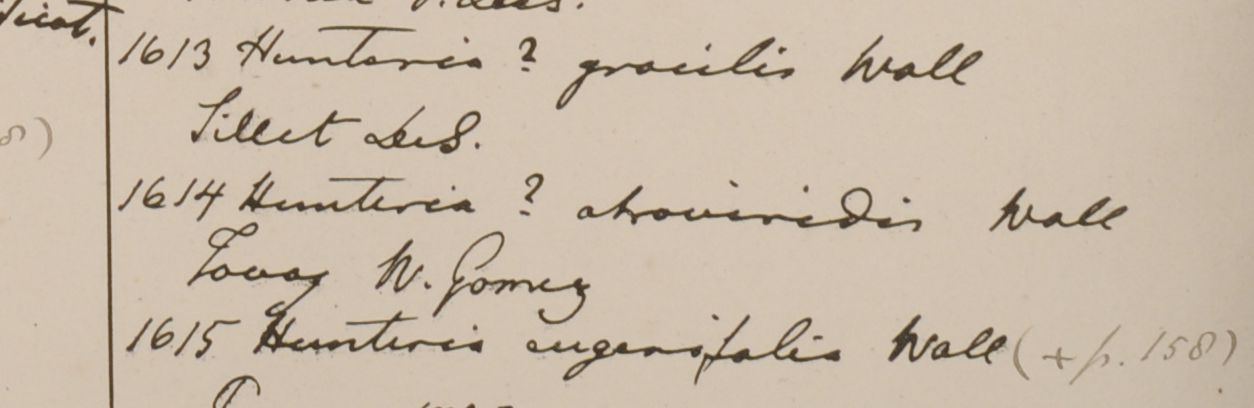 1613 Hunteria ? gracilis Wall
Sillet DeS.
1614 Hunteria ? atroviridis Wall
Tavoy W. Gomez
1615 Hunteria eugenifolia Wall (+ p. 158)